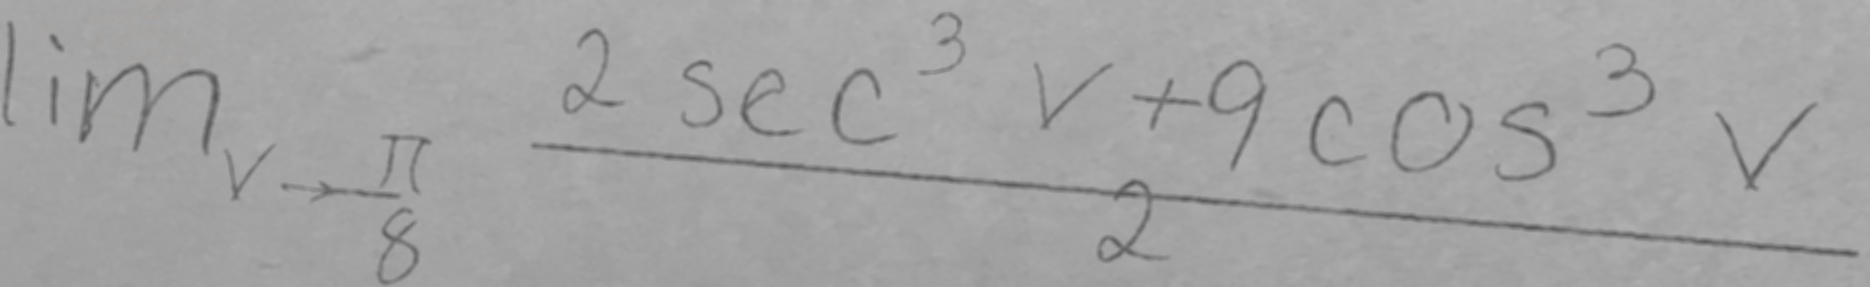 \lim_{v \to \frac{\pi}{8}} \frac{2 \sec^3 v + 9 \cos^3 v}{2}